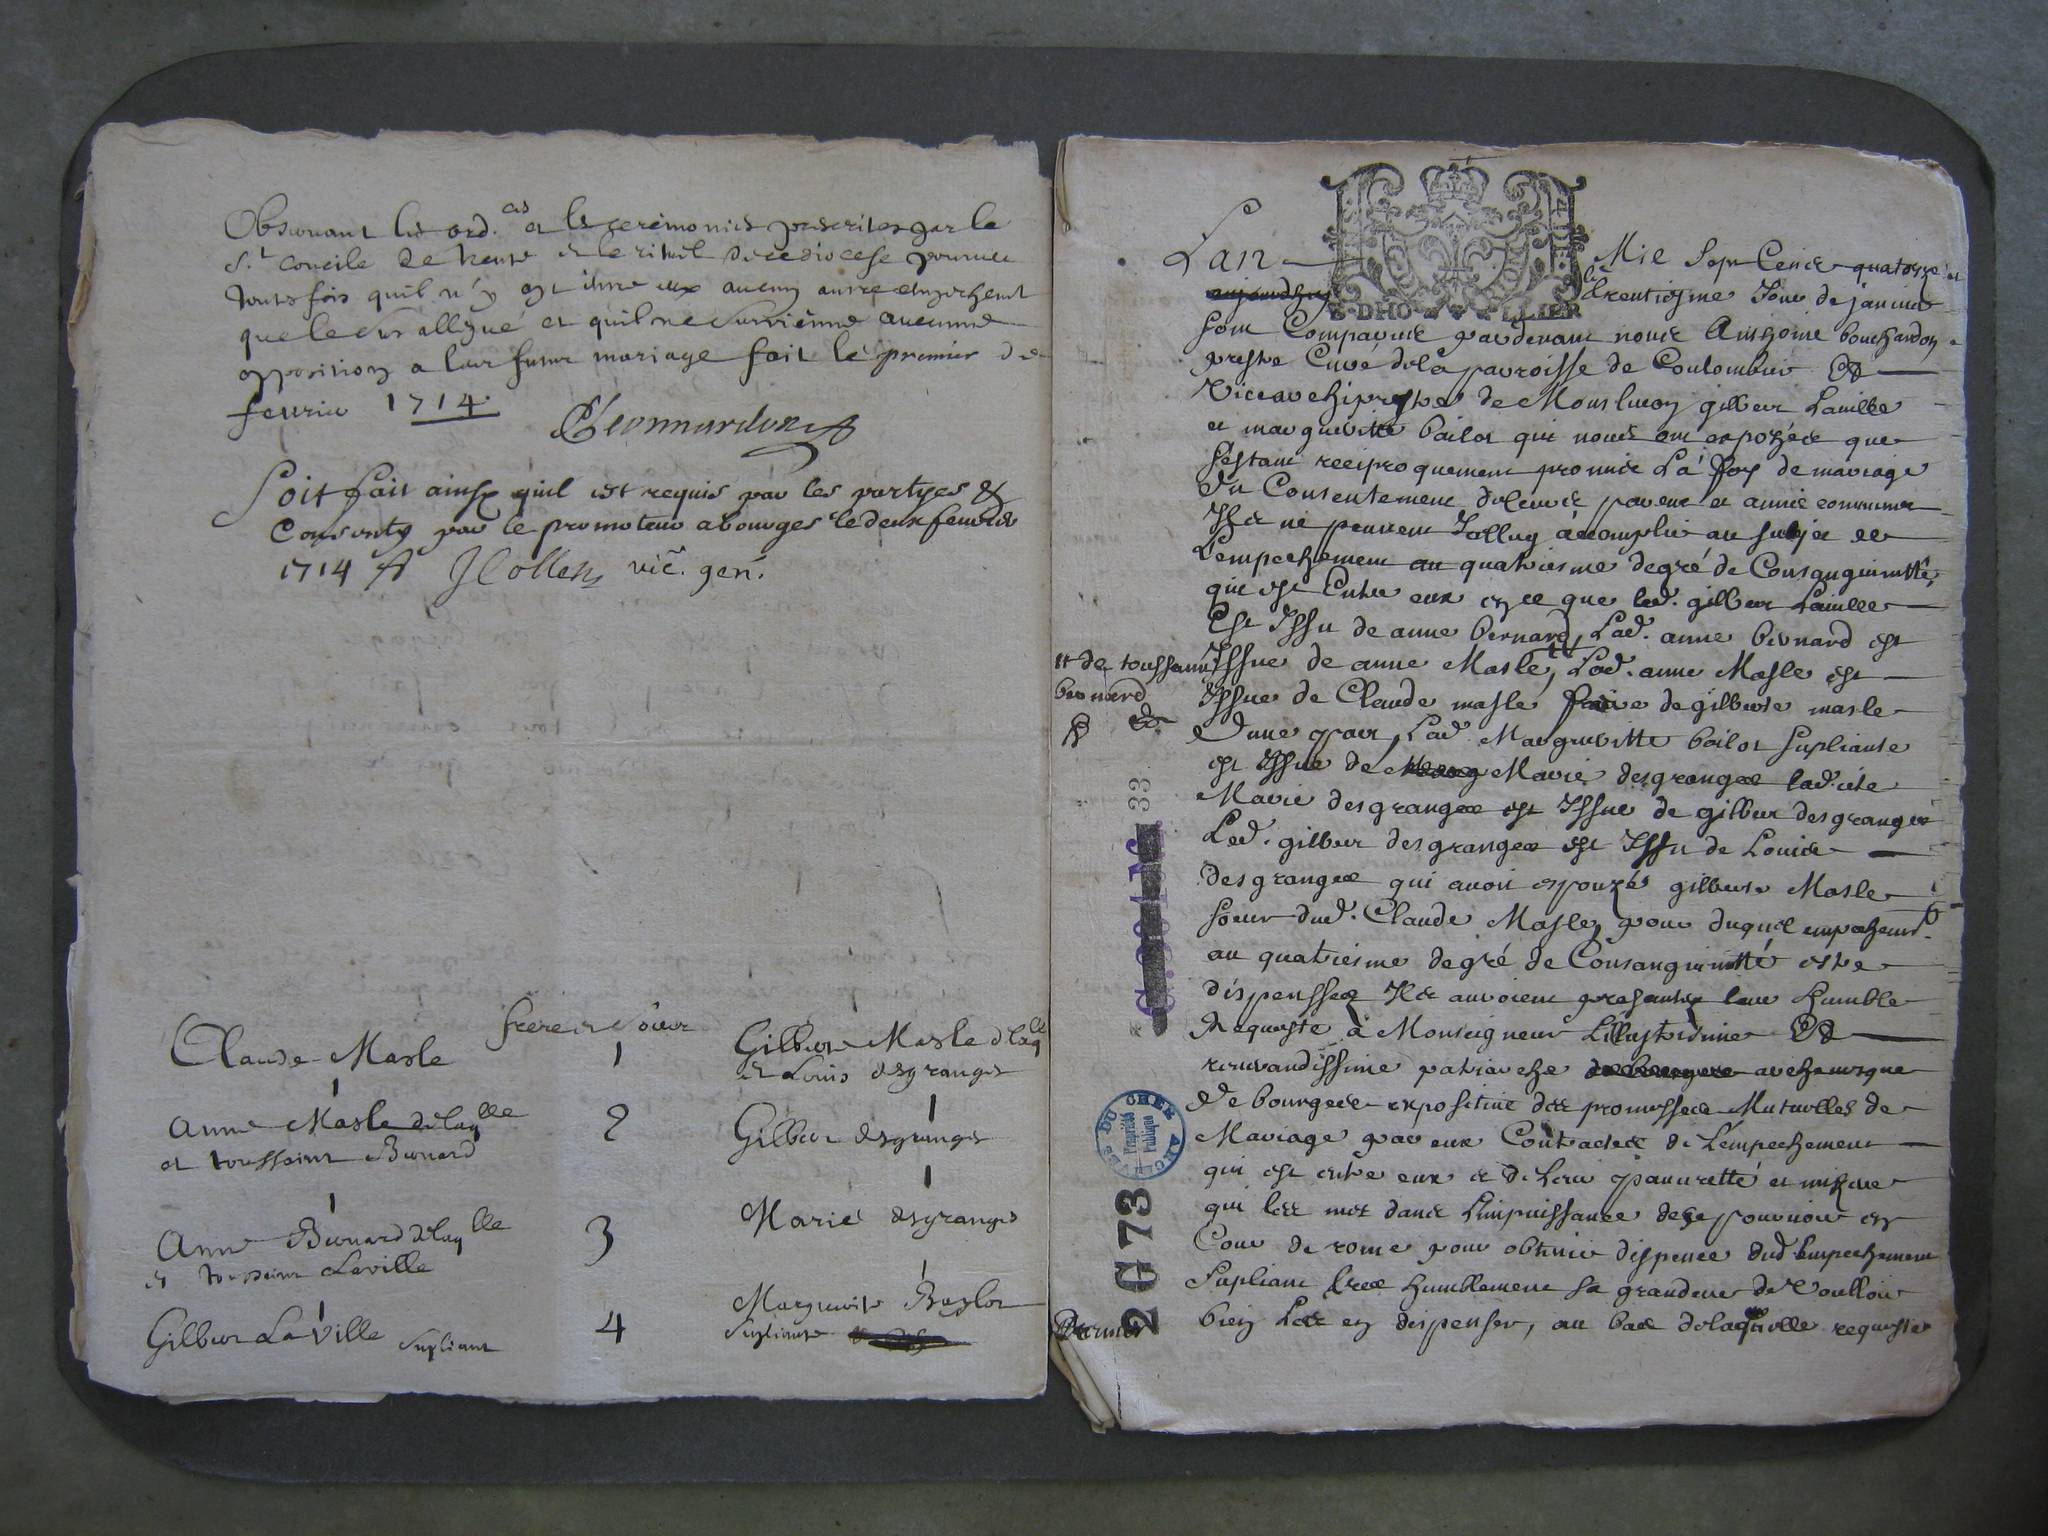 Observant les ord.ces et les ceremonies prescrites par le
S.t concile de trente et le rituel de ce diocese pourveu
toutefois quil n'y ayt entre eux aucun autre empechemt
que le sus allegué et quil ne survienne aucunne
opposition a leur futur mariage fait le premier de
fevrier 1714.
Soit fait ainsy quil est requis par les partyes &
Consenty par le promoteur a bourges le deux fevrier
1714 vic. gen.
frere et soeur
Claude Masle
1
Gilberte Masle dlaqlle
et Louis desgranges
Anne Masle delaqlle
et toussaint Bernard
2
Gilbert desgranges
Anne Bernard delaqlle
et toussaint Laville
3
Marie desgranges
Gilbert La Ville supliant
4
Marguerite Baylot
supliante
Lan Mil Sept Cent quatorze et
aujourdhuy le trentiesme Jour de janvier
sont Comparus pardevant nous Anthoine bouchardon
prestre Curé de la parroisse de Coulombier &
Vicearchiprestre de Monlucon gilbert Laville
et margueritte bailot qui nous ont exposés que
sestant reciproquement promis La foy de mariage
du Consentement de leurs parens et amis communs
Ils ne peuvent Jcelluy accomplir au sujet de
Lempechement au quatriesme degré de Consanguinitté
qui est Entre eux en ce que led. gilbert Laville
Est Issu de anne bernard, Lad. anne bernard est
Issue de anne Masle, Lad. anne Masle est
et de toussaint
bernard
Issue de Claude masle frere de gilberte masle
Dune part, Lad. Margueritte bailot supliante
est Issue de Marie desgranges ladicte
Marie desgranges est Issue de gilbert desgranges
Led. gilbert desgranges est Issu de Louis
desgranges qui avoit espouzé gilberte Masle
soeur dud. Claude Masle, pour duquel empechemt
au quatriesme degré de Consanguinitté estre
dispensses Ils auroient presanté leur humble
Requeste à Monseigneur Lillustrissime &
reverandissime patriarche de bourges archevesque
De bourges expositive des promesses Mutuelles de
Mariage par eux Contractées de Lempechement
qui est entre eux et de Leur pauvretté et misere
qui les met dans Limpuissance de se pourvoir en
Cour de rome pour obtenir dispence dud Empechement
Supliant tres humblement sa grandeur de Voulloir
bien Les en dispenser, au bas de laquelle requeste
Premier
33
2 G 73
ARCHIVES DU CHER
Propriété
Publique